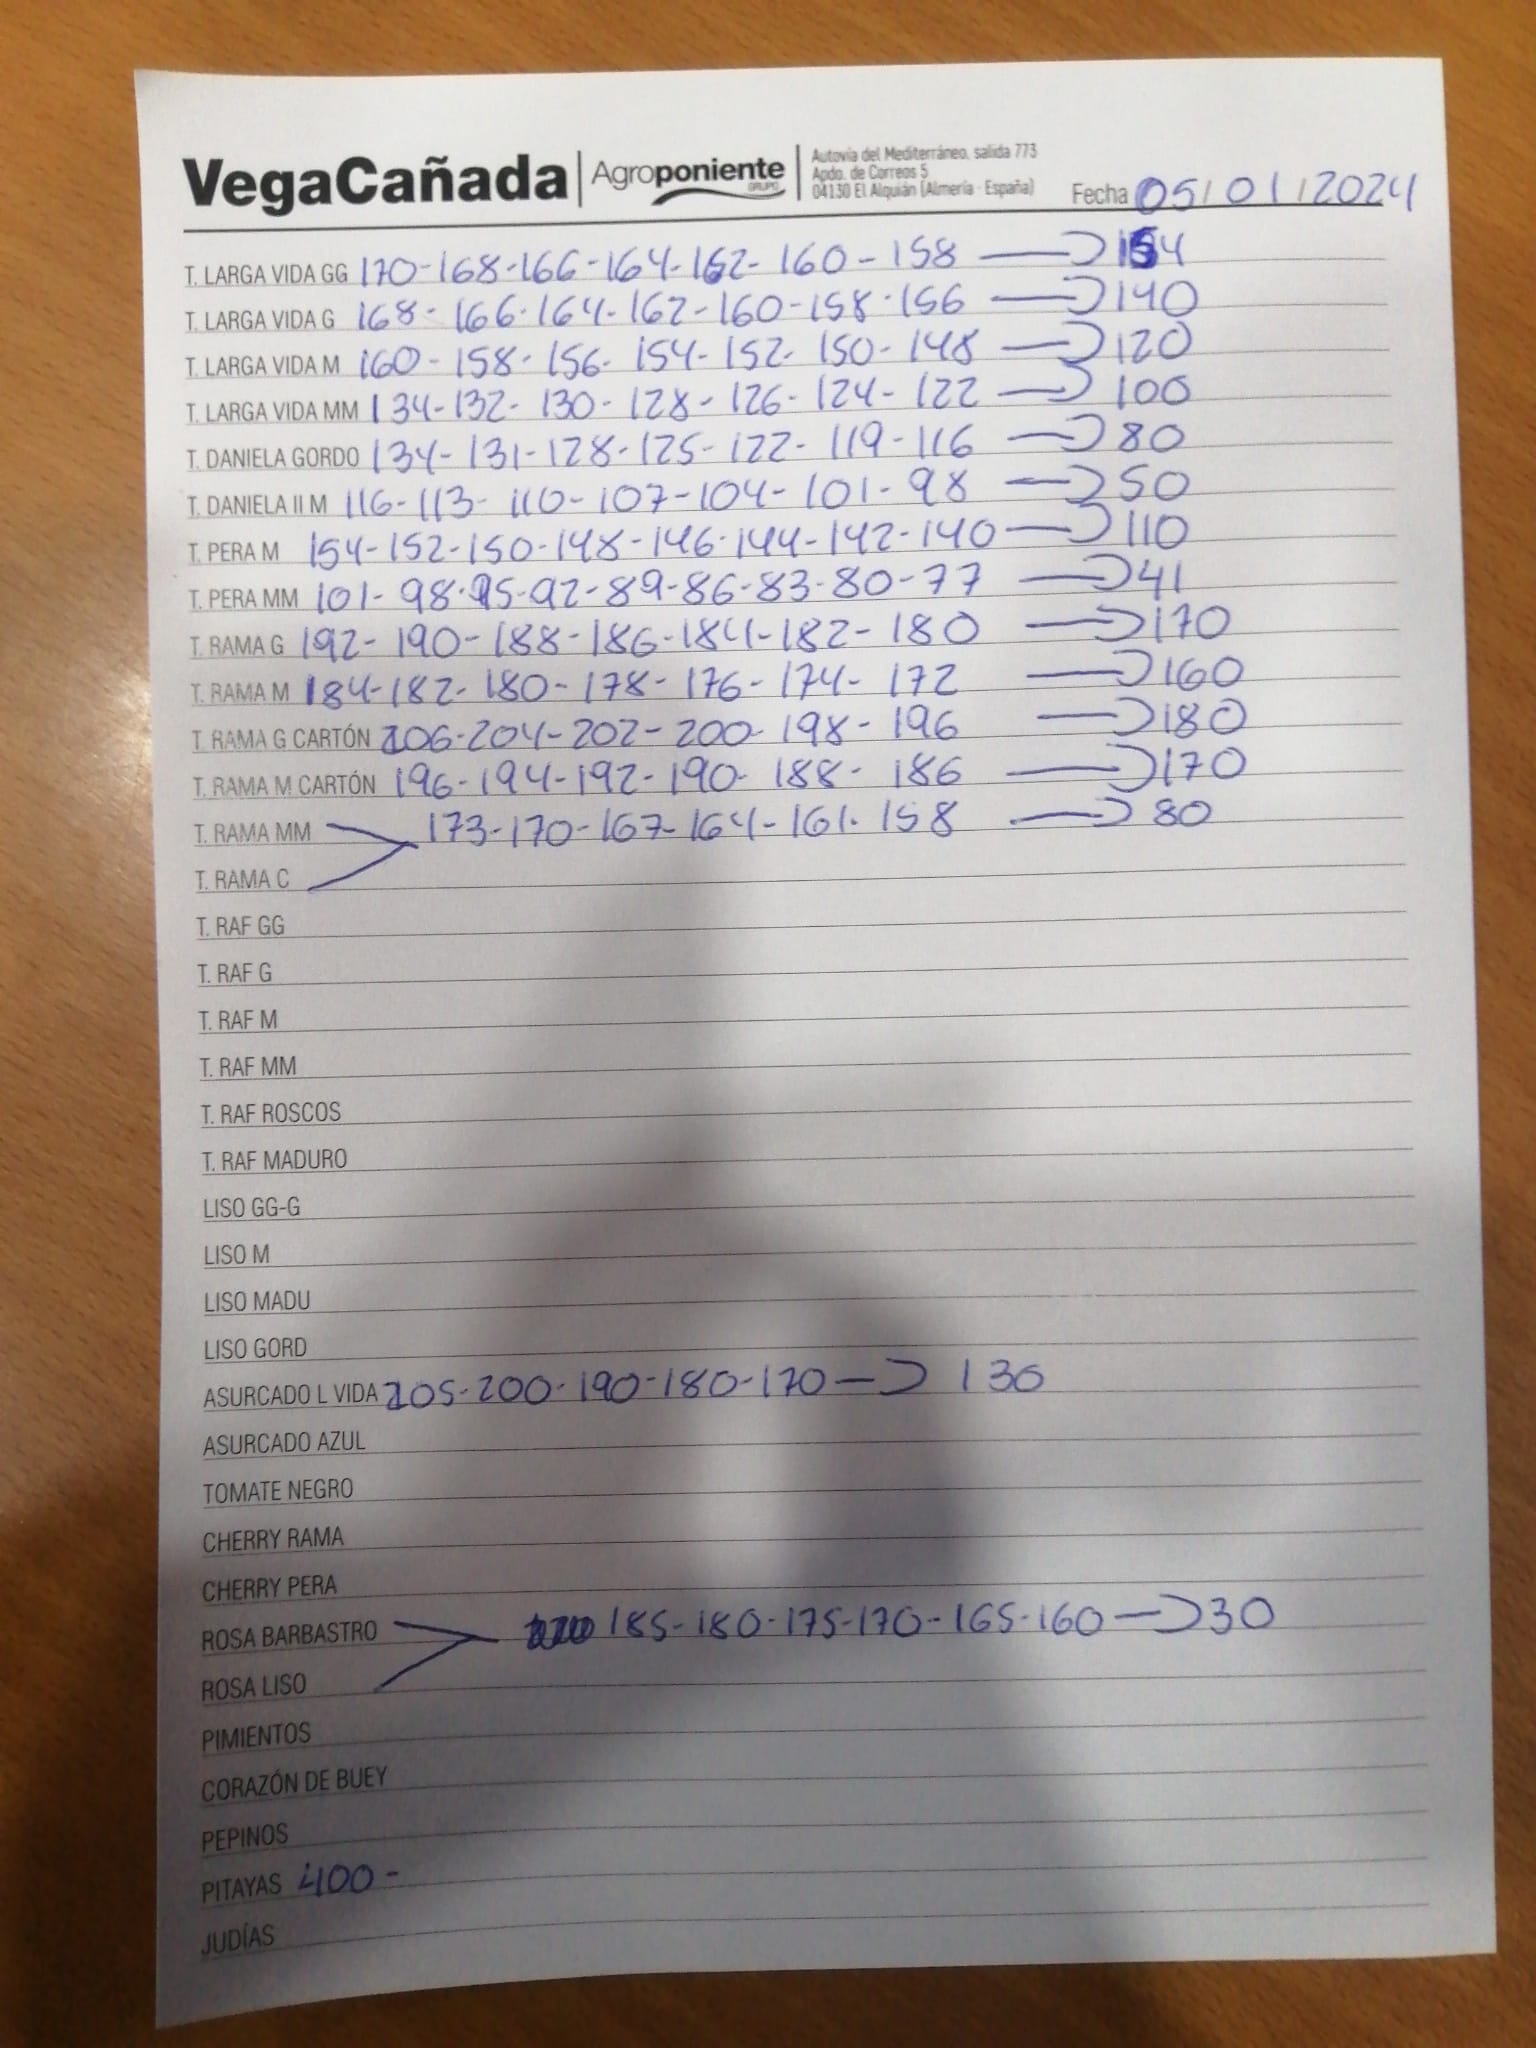 VegaCañada
Agroponiente
GRUPO
Autovía del Mediterráneo, salida 773
Apdo. de Correos 5
04130 El Alquián (Almería - España)
Fecha 05/01/2024
T. LARGA VIDA GG 170-168-166-164-162-160-158 → 154
T. LARGA VIDA G 168-166-164-162-160-158-156 → 140
T. LARGA VIDA M 160-158-156-154-152-150-148 → 120
T. LARGA VIDA MM 134-132-130-128-126-124-122 → 100
T. DANIELA GORDO 134-131-128-125-122-119-116 → 80
T. DANIELA II M 116-113-110-107-104-101-98 → 50
T. PERA M 154-152-150-148-146-144-142-140 → 110
T. PERA MM 101-98-95-92-89-86-83-80-77 → 41
T. RAMA G 192-190-188-186-184-182-180 → 170
T. RAMA M 184-182-180-178-176-174-172 → 160
T. RAMA G CARTÓN 206-204-202-200-198-196 → 180
T. RAMA M CARTÓN 196-194-192-190-188-186 → 170
T. RAMA MM 173-170-167-164-161-158 → 80
T. RAMA C
T. RAF GG
T. RAF G
T. RAF M
T. RAF MM
T. RAF ROSCOS
T. RAF MADURO
LISO GG-G
LISO M
LISO MADU
LISO GORD
ASURCADO L VIDA 205-200-190-180-170 → 130
ASURCADO AZUL
TOMATE NEGRO
CHERRY RAMA
CHERRY PERA
ROSA BARBASTRO 185-180-175-170-165-160 → 30
ROSA LISO
PIMIENTOS
CORAZÓN DE BUEY
PEPINOS
PITAYAS 400-
JUDÍAS